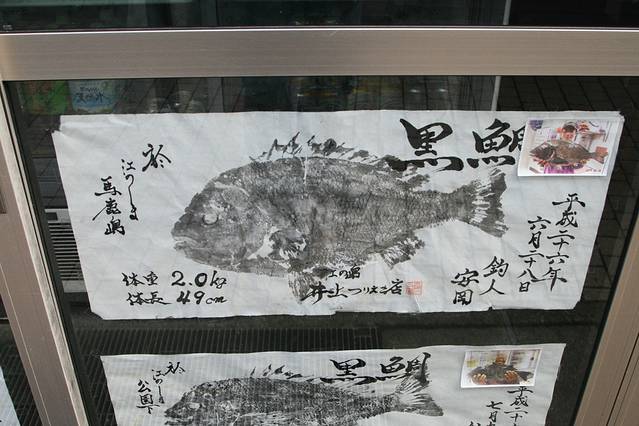 黒鯛
於
江のしま
馬鹿嶋
平成二十六年
六月二十八日
釣人
安岡
体重 2.0kg
体長 49cm
江の島
井上つりえさ店
黒鯛
於
江のしま
公園下
平成二十
七月